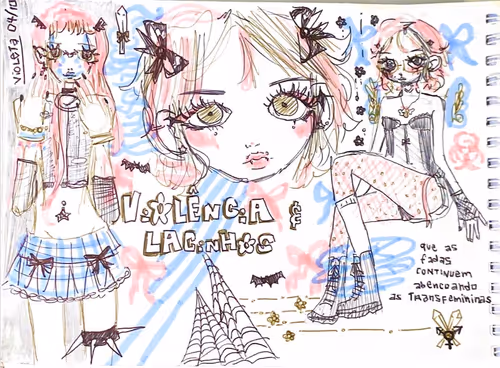 Violeta 04/10
VIOLÊNCIA E
LACINHOS
que as
fadas
continuem
abençoando
as TRANSfemininas